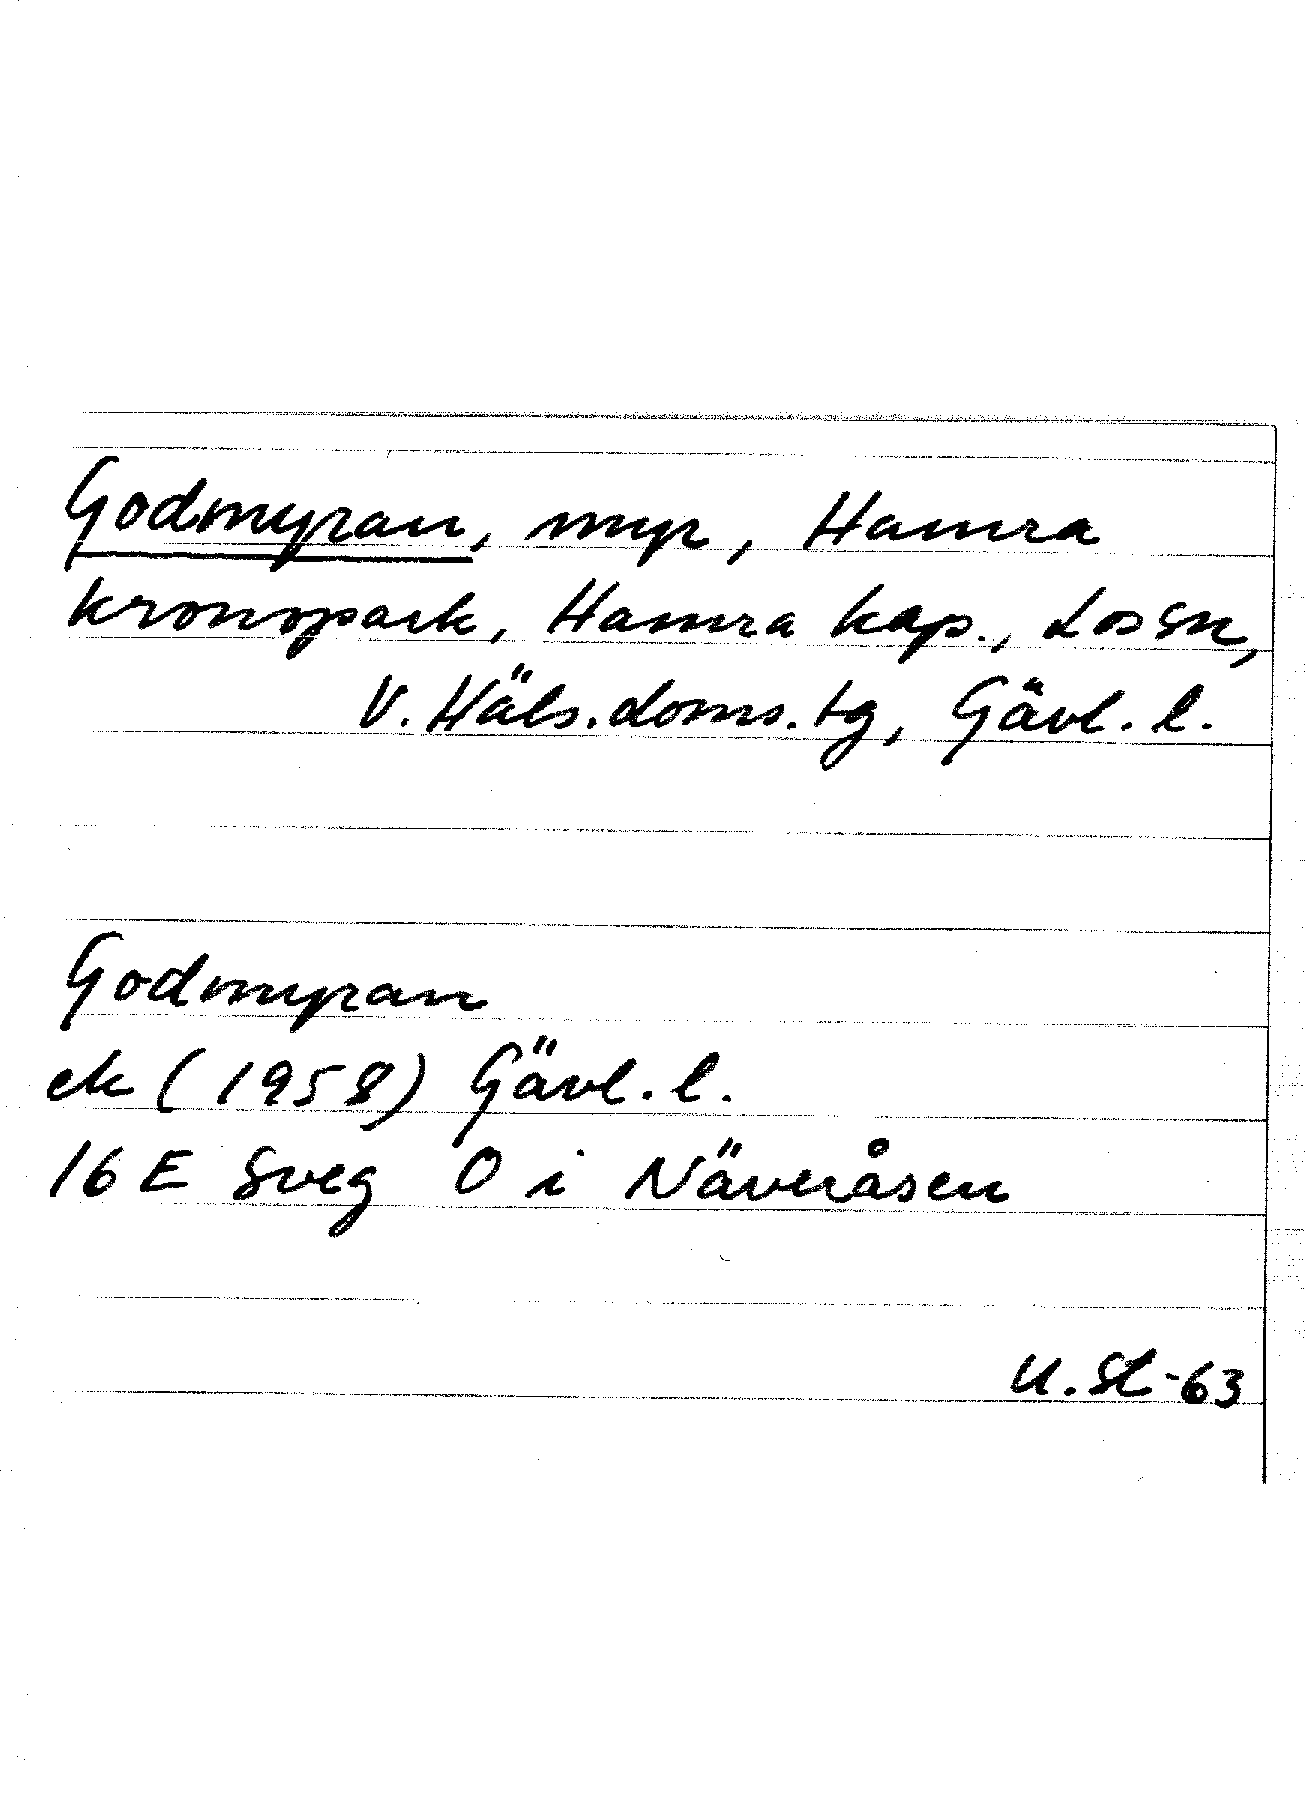 Godmyran, myr, Hamra
kronopark, Hamra kap., Los sn,
V. Häls. doms. tg, Gävl. l.
Godmyran
ek (1958) Gävl. l.
16 E Sveg O i Näveråsen
U. St -63